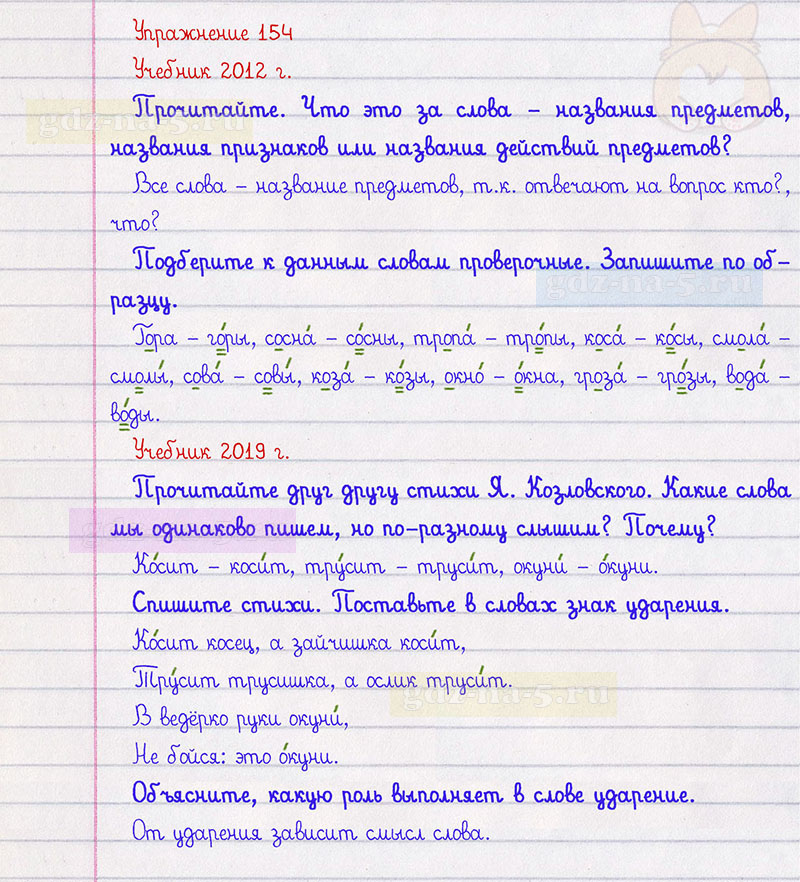 Упражнение 154
Учебник 2012 г.
gdz-na-5.ru
Прочитайте. Что это за слова – названия предметов,
названия признаков или названия действий предметов?
Все слова – название предметов, т.к. отвечают на вопрос кто?,
что?
Подберите к данным словам проверочные. Запишите по об-
gdz-na-5.ru
разцу.
Гора – го́ры, сосна́ – со́сны, тропа́ – тро́пы, коса́ – ко́сы, смола́ –
смолы́, сова́ – совы́, коза́ – ко́зы, окно́ – о́кна, гроза́ – гро́зы, вода́ –
во́ды.
Учебник 2019 г.
Прочитайте друг другу стихи Я. Козловского. Какие слова
мы одинаково пишем, но по-разному слышим? Почему?
Ко́сит – коси́т, тру́сит – труси́т, окуни́ – о́куни.
Спишите стихи. Поставьте в словах знак ударения.
Ко́сит косец, а зайчишка коси́т,
Тру́сит трусишка, а ослик труси́т.
gdz-na-5.ru
В ведёрко руки окуни́,
Не бойся: это о́куни.
Объясните, какую роль выполняет в слове ударение.
От ударения зависит смысл слова.